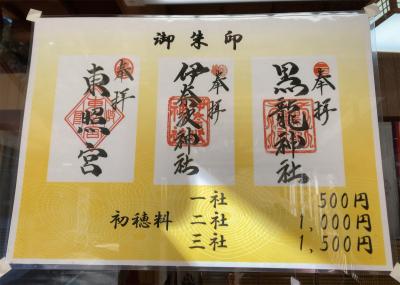 御朱印
奉拝
黒龍神社
奉拝
伊奈波神社
奉拝
東照宮
初穂料
一社 500円
二社 1,000円
三社 1,500円